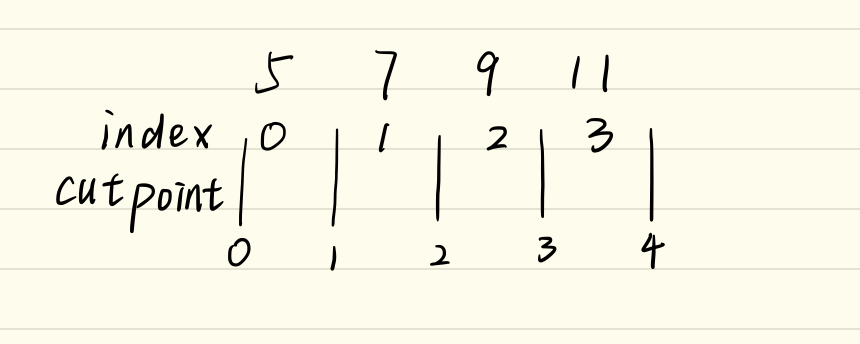 5 7 9 11
index 0 1 2 3
cutpoint
0 1 2 3 4